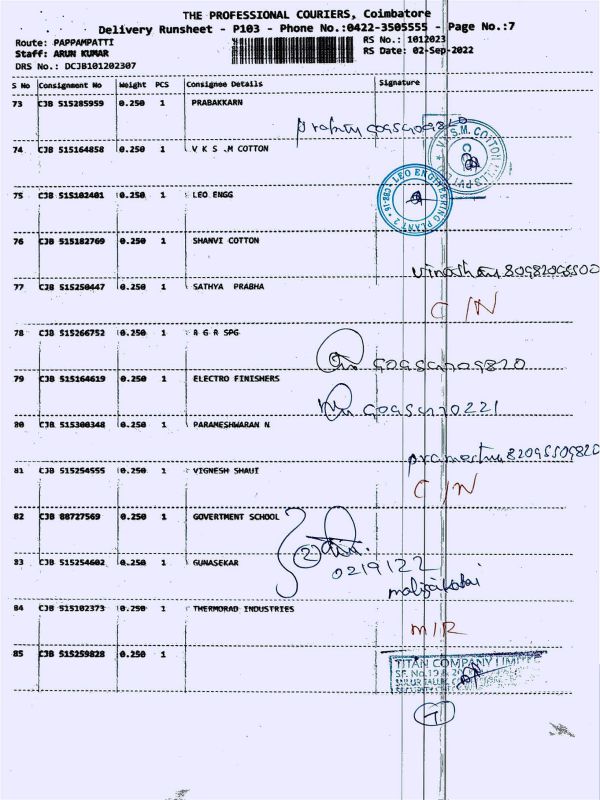 THE PROFESSIONAL COURIERS, Coimbatore
Delivery Runsheet - P103 - Phone No.:0422-3505555 - Page No.:7
Route: PAPPAMPATTI
RS No.: 1012023
Staff: ARUN KUMAR
RS Date: 02-Sep-2022
DRS No.: DCJB101202307
S No Consignment No Weight PCS Consignee Details Signature
73 CJB 515285959 0.250 1 PRABAKKARN
74 CJB 515164858 0.250 1 V K S .M COTTON
V.K.S.M. COTTON
75 CJB 515102401 0.250 1 LEO ENGG
LEO ENGINEERING PLANT 2
76 CJB 515182769 0.250 1 SHANVI COTTON
77 CJB 515250447 0.250 1 SATHYA PRABHA
C/N
78 CJB 515266752 0.250 1 A G R SPG
79 CJB 515164619 0.250 1 ELECTRO FINISHERS
80 CJB 515300348 0.250 1 PARAMESHWARAN N
81 CJB 515254555 0.250 1 VIGNESH SHAUI
C/N
82 CJB 88727569 0.250 1 GOVERTMENT SCHOOL
83 CJB 515254602 0.250 1 GUNASEKAR
2
0219122
84 CJB 515102373 0.250 1 THERMORAD INDUSTRIES
M/R
85 CJB 515259828 0.250 1
TITAN COMPANY LIMITED
SF. No.19 & 20
7